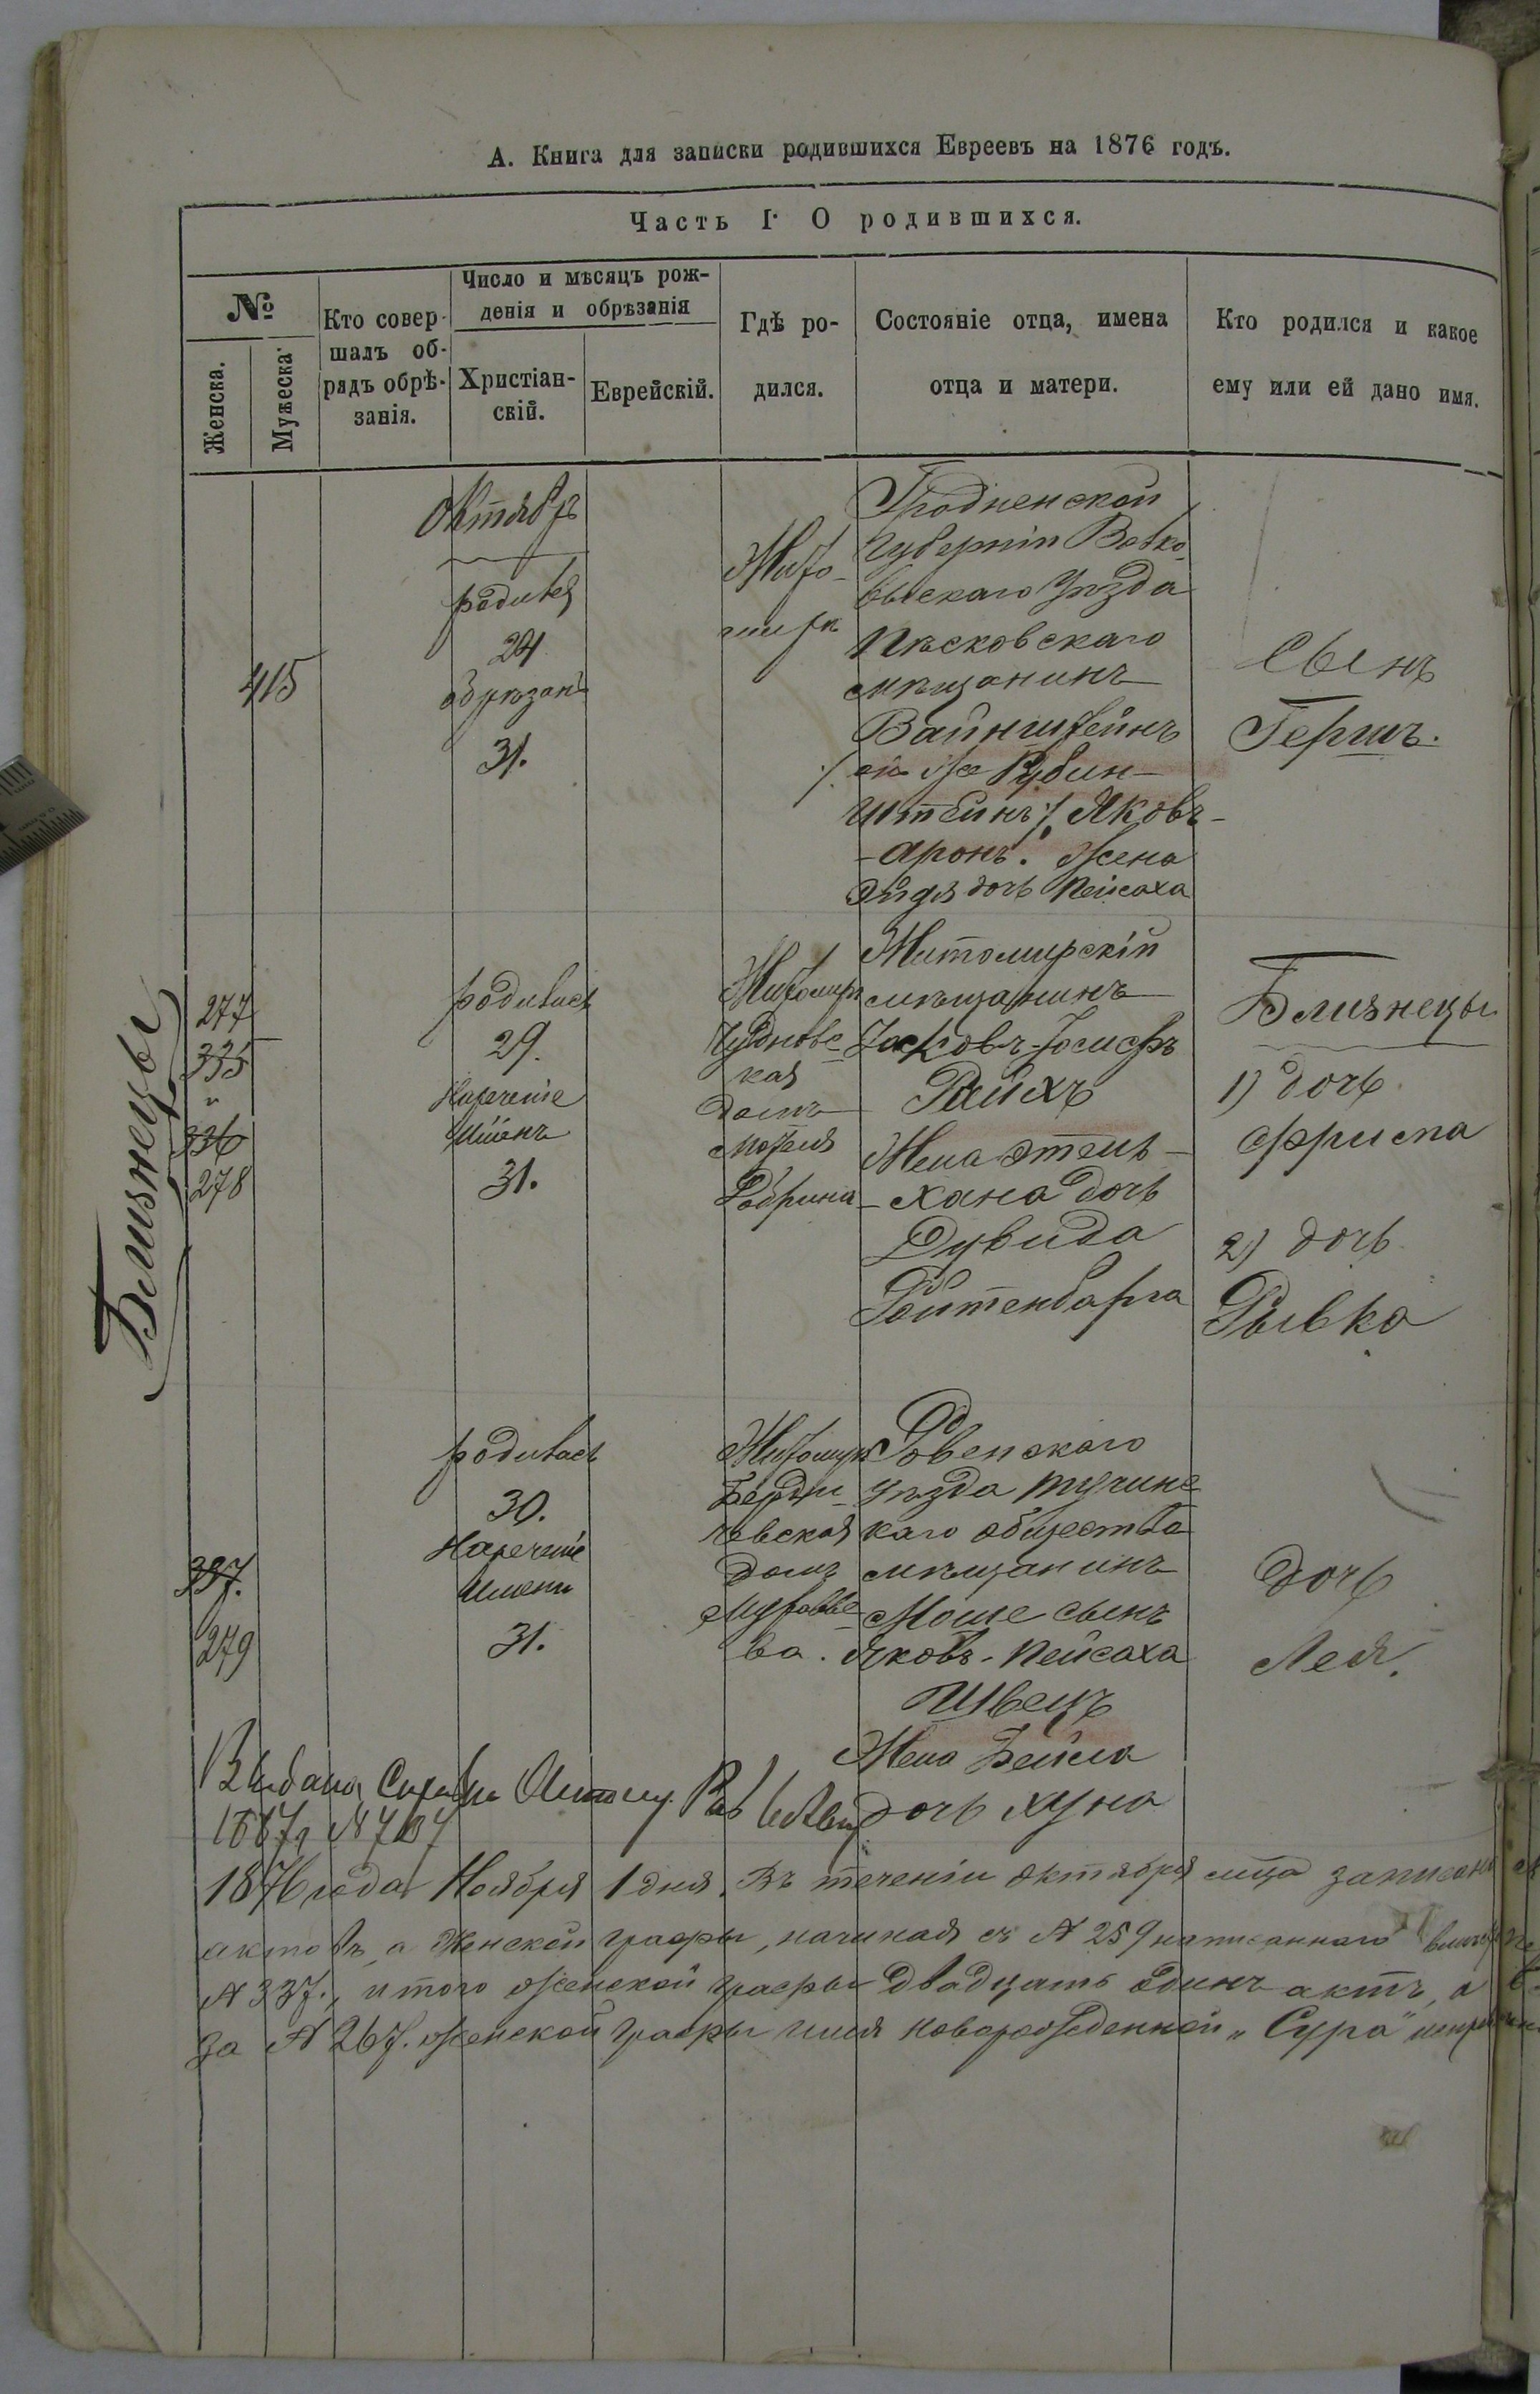 А. Книга для записки родившихся Евреевъ на 1876 годъ.
Часть I. О родившихся.
№
Женска.
Мужеска.
Кто совер-
шалъ об-
рядъ обрѣ-
занія.
Число и мѣсяцъ рож-
денія и обрѣзанія
Христіан-
скій.
Еврейскій.
Гдѣ ро-
дился.
Состояніе отца, имена
отца и матери.
Кто родился и какое
ему или ей дано имя.
415
Октябрь
родился
24
обрѣзанъ
31.
Жито-
миръ
Гродненской
Губерніи Волко-
выскаго Уѣзда
Пѣсковскаго
мѣщанинъ
Вайнштейнъ
/. онъ же Рубин-
штейнъ ./. Яковъ-
-Аронъ. Жена
Эйдя дочь Пейсаха
Сынъ
Гершъ.
Близнецы
277
335
"
336
278
родились
29.
Нареченіе
Именъ
31.
Житомиръ
Чудновс-
кая
домъ
Мотеля
Фабрина
Житомирскій
мѣщанинъ
Іосифъ
Райхъ
Жена Этель-
-Хана дочь
Дувида
Ройтенбарга
Близнецы
1) дочь
Фрима
2) дочь
Рывка
337.
279
родилась
30.
Нареченіе
Имени
31.
Житомиръ
Берди-
чевская
домъ
ва.
Ровенскаго
уѣзда Тучинс-
каго общества
мѣщанинъ
Моше сынъ
Яковъ-Пейсаха
Швецъ
Жена Бейла
дочь Хуна
дочь
Лея.
Выдана Справка
1887г №
1876 года Ноября 1 дня. Въ теченіи октября мца записано
актовъ, а Женской графы, начиная съ № 259 написаннаго
№ 337., итого женской графы двадцать одинъ актъ, а
За № 267. женской графы имя новорожденной „Сура"